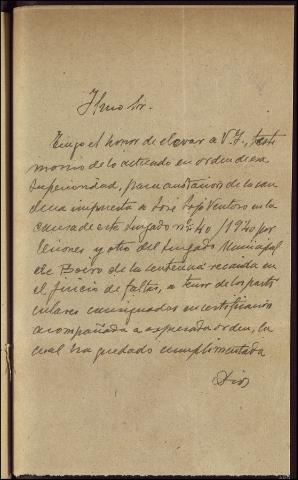 Ilmo Sr.
Tengo el honor de elevar a V.I., testi
monio de lo actuado en orden de esa
Superioridad, para constancia de la con
dena impuesta a José Rejo Ventoso en la
causa de este Juzgado nº 40/1920 por
lesiones y otro del Juzgado Municipal
de Boiro de la sentencia recaida en
el juicio de faltas, a tenor de los parti
culares consignados en certificación
acompañada a expresada orden, la
cual ha quedado cumplimentada
Dios